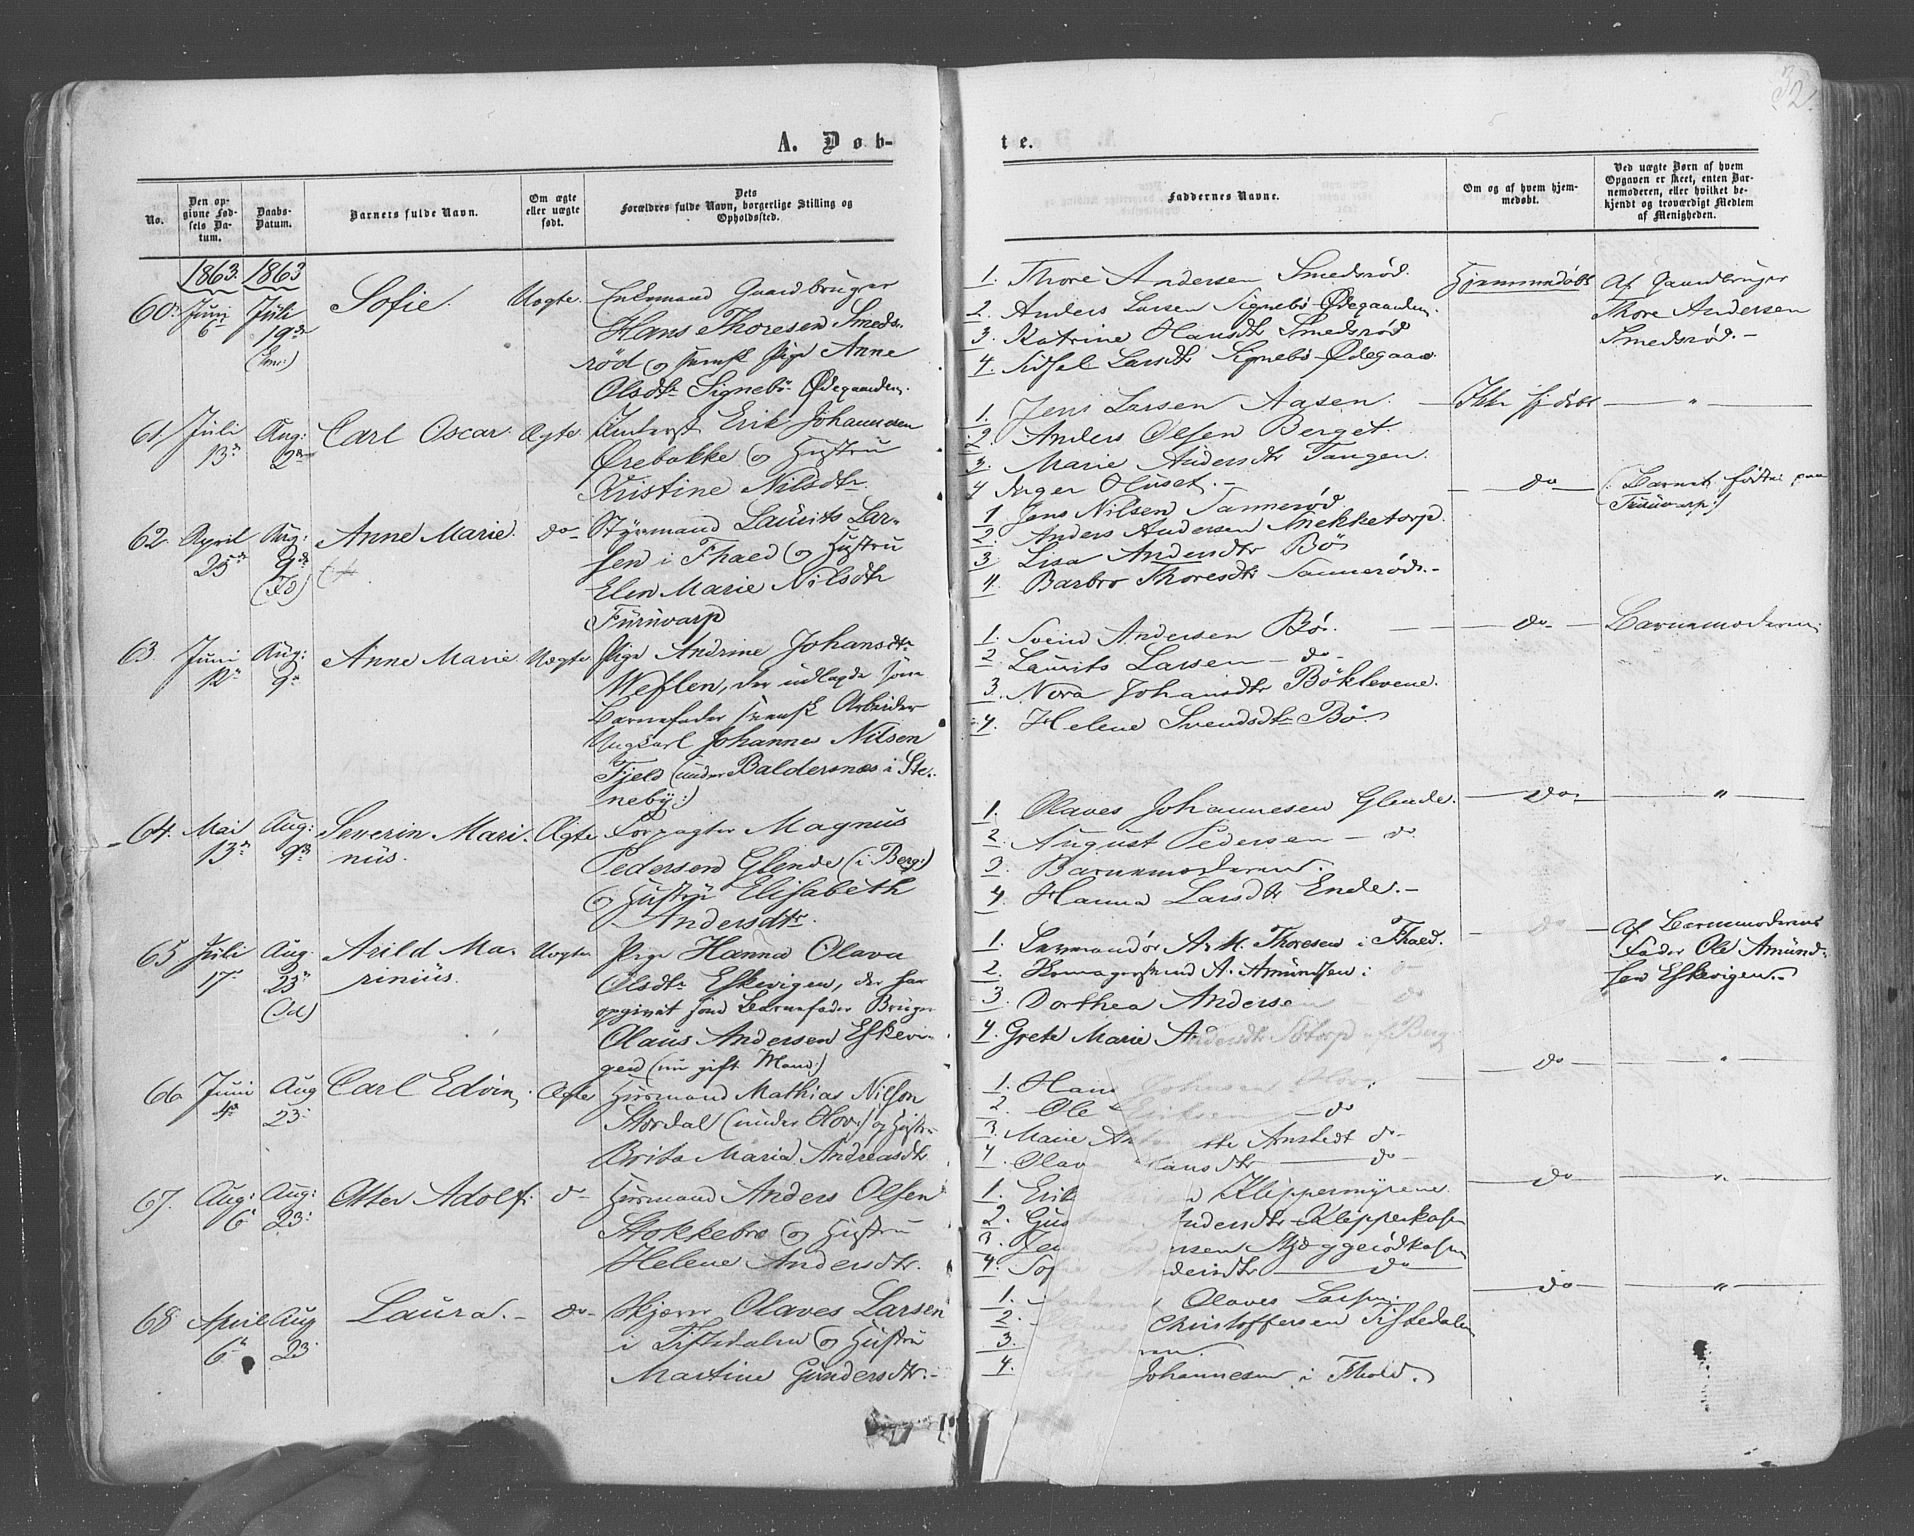 32.
A. Døb-
te.
No.
Den op-
givne Fød-
sels Da-
tum.
Daabs-
Datum.
Barnets fulde Navn.
Om ægte
eller uægte
født.
Dets
Forældres fulde Navn, borgerlige Stilling og
Opholdssted.
Faddernes Navne.
Om og af hvem hjem-
medøbt.
Ved uægte Børn af hvem
Opgaven er skeet, enten Bar-
nemoderen, eller hvilket be-
kjendt og troværdigt Medlem
af Menigheden.
1863. 1863
60. Juni 6te Juli 19de
Sofie. Uægte.
Enkemand Gaardbruger
Hans Thoresen Smeds-
rød og svensk Pige Anne
Olsdtr Signebø-Ødegaarden.
1. Thore Andersen Smedsrød.
2. Anders Larsen Signebø-Ødegaarden.
3. Katrine Hansdtr Smedsrød
4. Sidsel Larsdtr Signebø-Ødegaar
Hjemmedøbt
Af Gaardbruger
Thore Andersen
Smedsrød.-
61. Juli 13de Aug: 2den
Carl Oscar. Ægte.
Erik Johannesen
Ørebakke og Hustru
Kristine Nilsdtr.
1. Jens Larsen Aasen.
2. Anders Olsen Berget.
3. Marie Andersdtr Tangen.
4 Inger Huset.-
Ikke hjdøbt "
62. April 25de Aug: 9de
Anne Marie. do-
Styrmand Laurits Lar-
sen i Fhald og Hustru
Elen Marie Nilsdtr
Furuvarp
1 Jens Nilsen Sannerød.
2. Anders Andersen Snekketorp.
3. Lisa Andersdtr Bø
4. Barbro Thoresdtr Sannerød.-
do
(: Barnet født paa
Furuvarp:)
63. Juni 12te Aug: 9de
Anne Marie Uægte
Pige Andrine Johansdtr
Weflen, der udlagde som
Barnefader svensk Arbeider
Ungkarl Johannes Nilsen
Fjeld (under Baldersnæs i Ste-
neby:)
1. Svend Andersen Bø.
2 Laurits Larsen - do-
3. Nora Johansdtr Bøklevene.
4. Helene Svendsdtr Bø
do- Barnemoderen
64. Mai 13de Aug: 9de
Severin Mari-
nus. Ægte
Forpagter Magnus
Pedersen Glende (i Berg:)
og Hustru Elisabeth
Andersdtr.
1. Olaves Johannesen Glende.
2. August Pedersen - do
3. Barnemoderen.
4. Hanna Larsdtr Ende.-
do- "
65 Juli 17. Aug 23de
Arild Ma-
rinius. Uægte
Pige Hanna Olava
Olsdtr Eskevigen, der har
opgivet som Barnefader Bruger
Olaus Andersen Eskevi-
gen (nu gift Mand)
1. A. M. Thoresen i Fhald.
2. A. Amundsen i
3. Dorthea Andersen
4. Grete Marie Andersdtr
do
af Barnemoderens
Fader Ole Amund-
sen Eskevigen.-
66 Juni 4de Aug 23.
Carl Edvin, Ægte
Husmand Mathias Nilsen
Stordal (under Hov:) og Hustru
Brita Maria Andreasdtr
1. Hans
2. Ole - do
3. Marie Arnstedt do-
4. Olava Hansdtr do-
do "
67. Aug: 6 Aug: 23:
Otter Adolf. do-
Husmand Anders Olsen
Stokkebro og Hustru
Helene Andersdtr.
1. Erik Kleppermyrene
2. Andersdtr Klepperkasen
3. Jens Andersen
4. Sofie Andersdtr do
do "
68. April 6te Aug 23.
Laura.- do-
Skjærer Olaves Larsen
i Tistedalen og Hustru
Martine Gundersdtr.-
1. Olaves Larsen.
2. Christoffersen Tistedalen
3.
4. Johannesen i Fhald.
do "